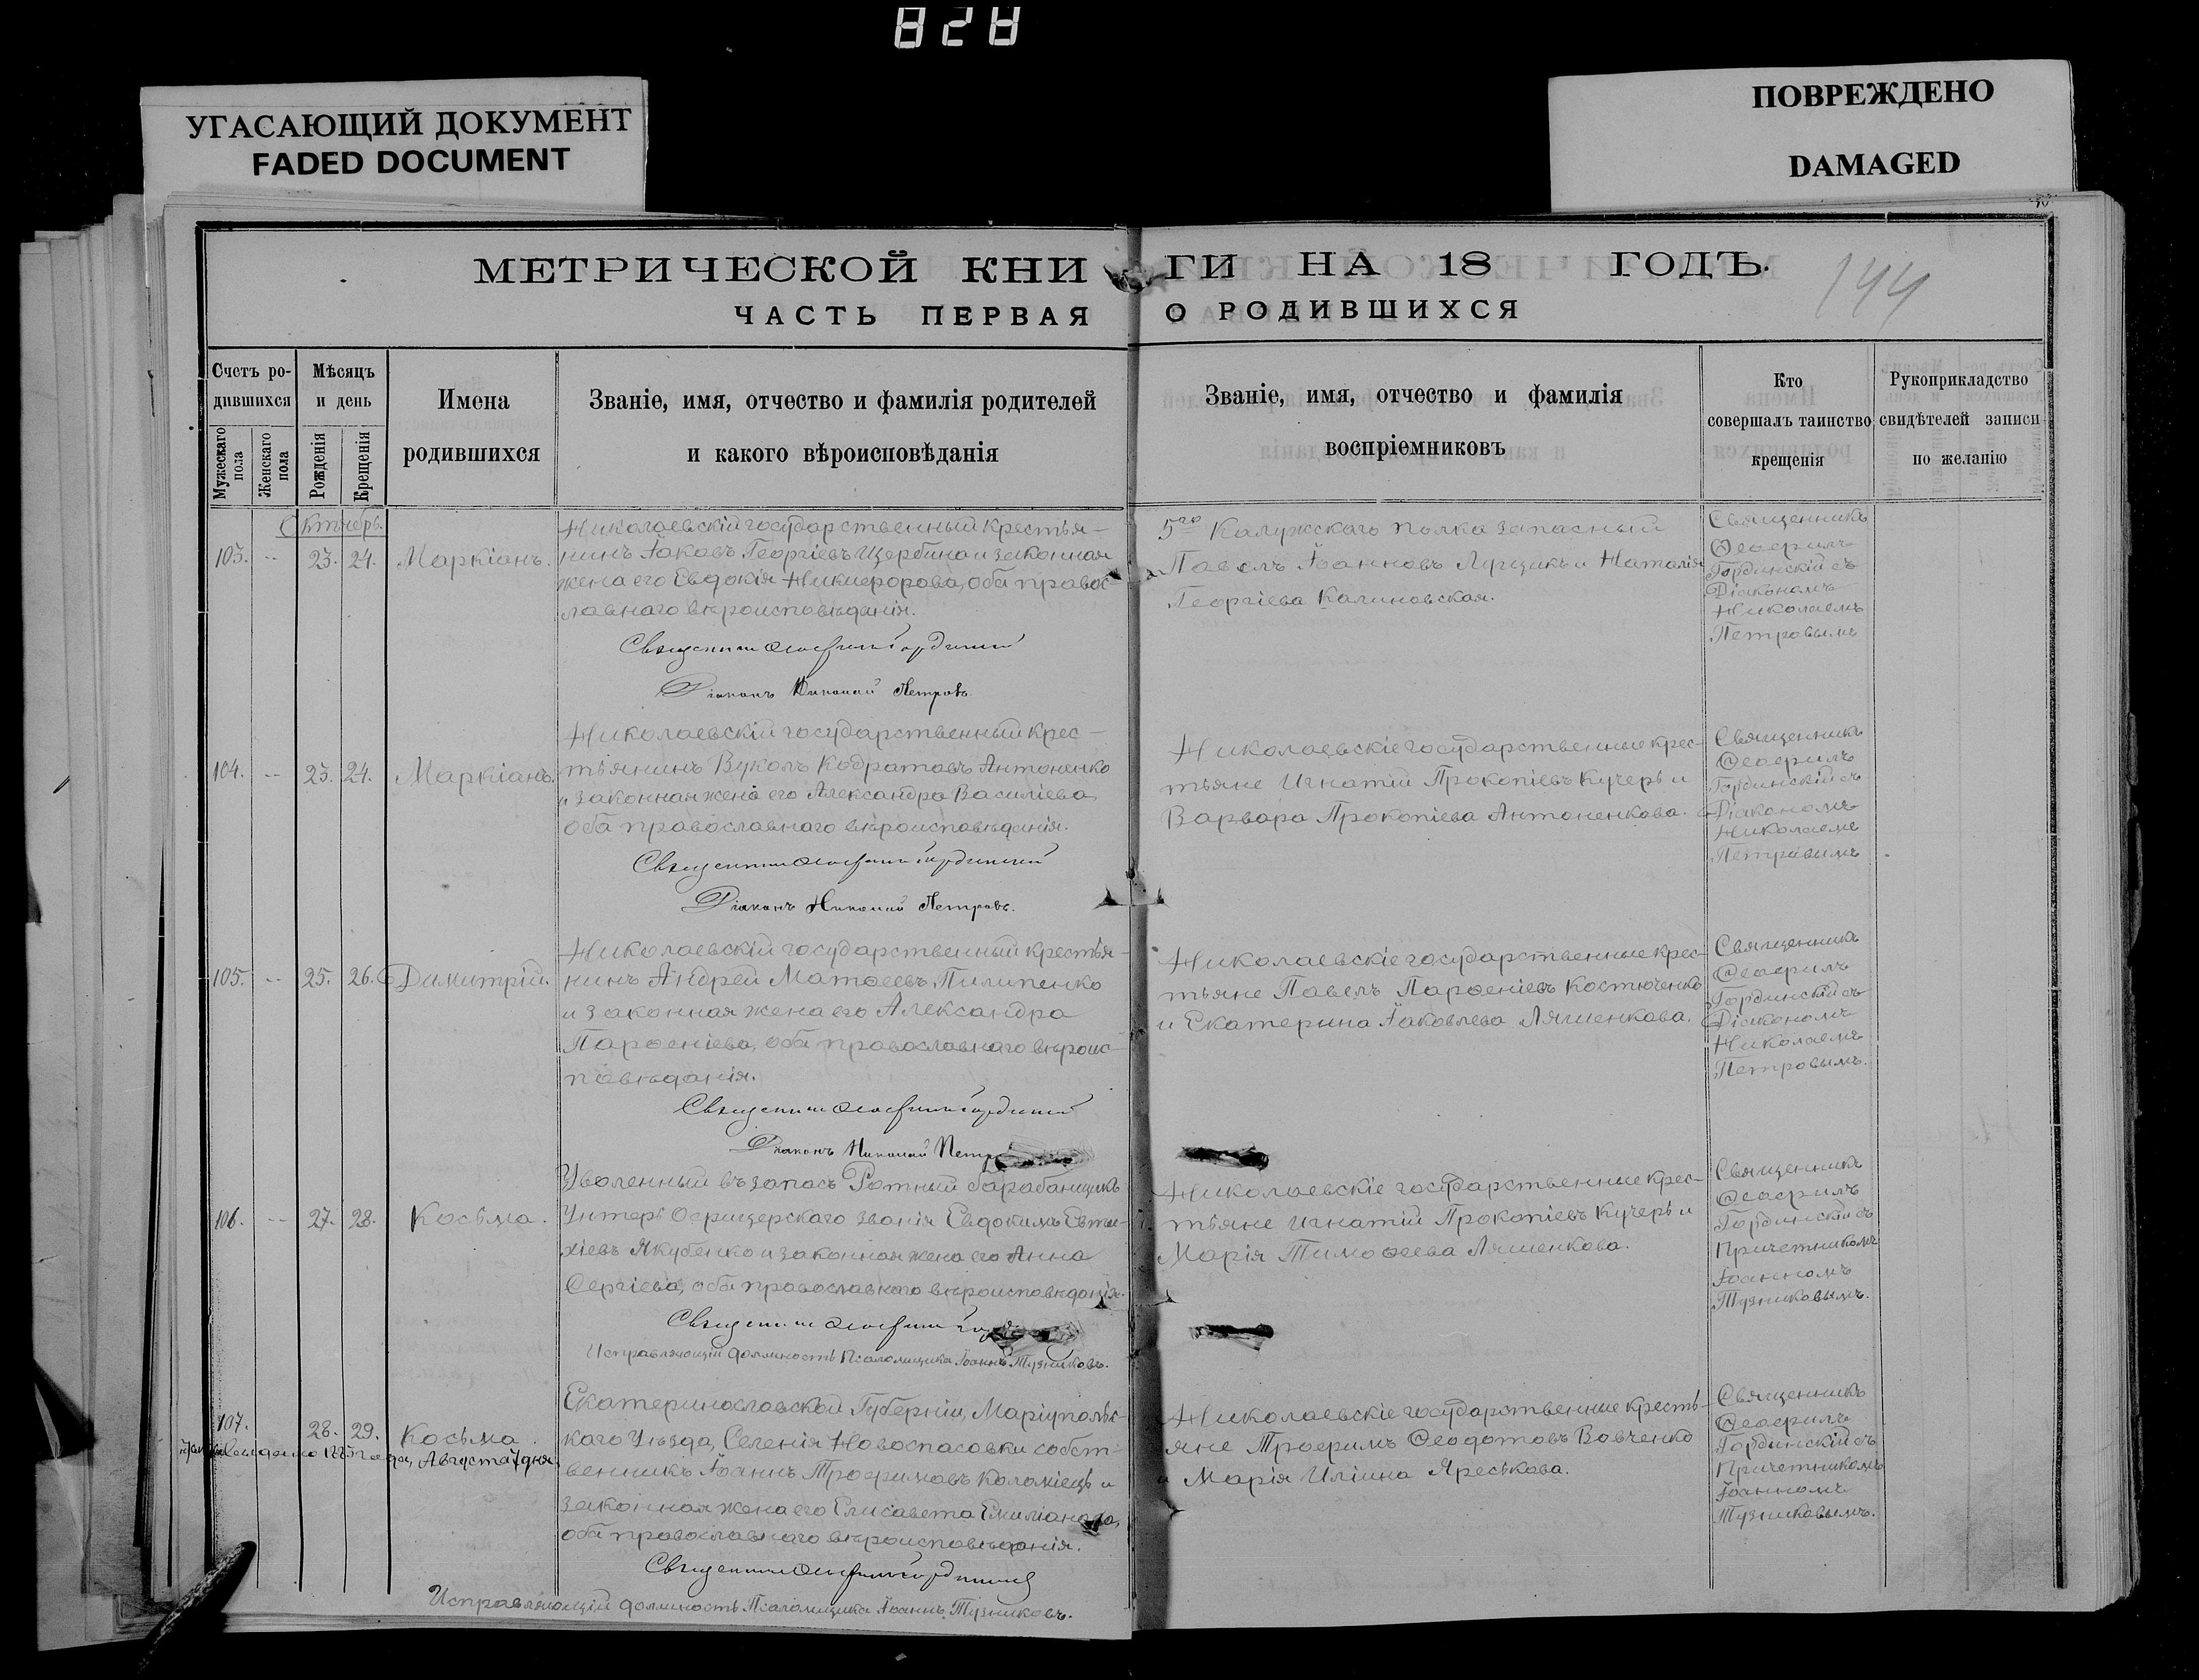 828
УГАСАЮЩИЙ ДОКУМЕНТ
FADED DOCUMENT
ПОВРЕЖДЕНО
DAMAGED
МЕТРИЧЕСКОЙ КНИГИ НА 18 ГОДЪ.
144
ЧАСТЬ ПЕРВАЯ О РОДИВШИХСЯ
Счетъ ро-
дившихся
Мужескаго пола
Женскаго пола
Мѣсяцъ
и день
Рожденія
Крещенія
Имена
родившихся
Званіе, имя, отчество и фамилія родителей
и какого вѣроисповѣданія
Званіе, имя, отчество и фамилія
воспріемниковъ
Кто
совершалъ таинство
крещенія
Рукоприкладство
свидѣтелей записи
по желанію
Октябрь.
103. -- 23. 24. Маркіанъ.
Николаевскій государственный крестья-
нинъ Іаковъ Георгіевъ Щербина и законная
жена его Евдокія Никифорова, оба правос-
лавнаго вѣроисповѣданія.
Священникъ Ѳеофилъ Гординскій
Діаконъ Николай Петровъ.
5го Калужскаго полка запасный
Павелъ Іоанновъ Лущикъ и Наталія
Георгіева Калиновская.
Священникъ
Ѳеофилъ
Гординскій съ
Діакономъ
Николаемъ
Петровымъ
104. -- 23. 24. Маркіанъ.
Николаевскій государственный крес-
тьянинъ Вуколъ Кодратовъ Антоненко
и законная жена его Александра Василіева,
оба православнаго вѣроисповѣданія.
Священникъ Ѳеофилъ Гординскій
Діаконъ Николай Петровъ.
Николаевскіе государственные крес-
тьяне Игнатій Прокопіевъ Кучеръ и
Варвара Прокопіева Антоненкова.
Священникъ
Ѳеофилъ
Гординскій съ
Діакономъ
Николаемъ
Петровымъ
105. -- 25. 26. Димитрій.
Николаевскій государственный крестья-
нинъ Андрей Матѳеевъ Пилипенко
и законная жена его Александра
Парѳеніева, оба православнаго вѣроис-
повѣданія.
Священникъ Ѳеофилъ Гординскій
Діаконъ Николай Петр
Николаевскіе государственные крес-
тьяне Павелъ Парѳеніевъ Костюченко
и Екатерина Іаковлева Ляшенкова.
Священникъ
Ѳеофилъ
Гординскій съ
Діакономъ
Николаемъ
Петровымъ.
106. -- 27. 28. Косьма.
Уволенный въ запасъ Ротный барабанщикъ
Унтеръ Офицерскаго званія Евдокимъ Евти-
хіевъ Якубенко и законная жена его Анна
Сергіева, оба православнаго вѣроисповѣданія.
Священникъ Ѳеофилъ
Исправляющій должность Псаломщика Іоаннъ Тузниковъ.
Николаевскіе государственные крес-
тьяне Игнатій Прокопіевъ Кучеръ и
Марія Тимоѳеева Ляшенкова.
Священникъ
Ѳеофилъ
Гординскій съ
Причетникомъ
Іоанномъ
Тузниковымъ.
107. 28. 29. Косьма.
года, Августа 7 дня
Екатеринославской Губерніи, Маріупольс-
каго Уѣзда, Селенія Новоспасовки собст-
венникъ Іоаннъ Трофимовъ Коломіецъ и
законная жена его Елисавета Емиліанова,
оба православнаго вѣроисповѣданія.
Священникъ Ѳеофилъ Гординскій
Исправляющій должность Псаломщика Іоаннъ Тузниковъ.
Николаевскіе государственные кресть-
яне Трофимъ Ѳеодотовъ Вовченко
и Марія Иліина Яреськова.
Священникъ
Ѳеофилъ
Гординскій съ
Причетникомъ
Іоанномъ
Тузниковымъ.